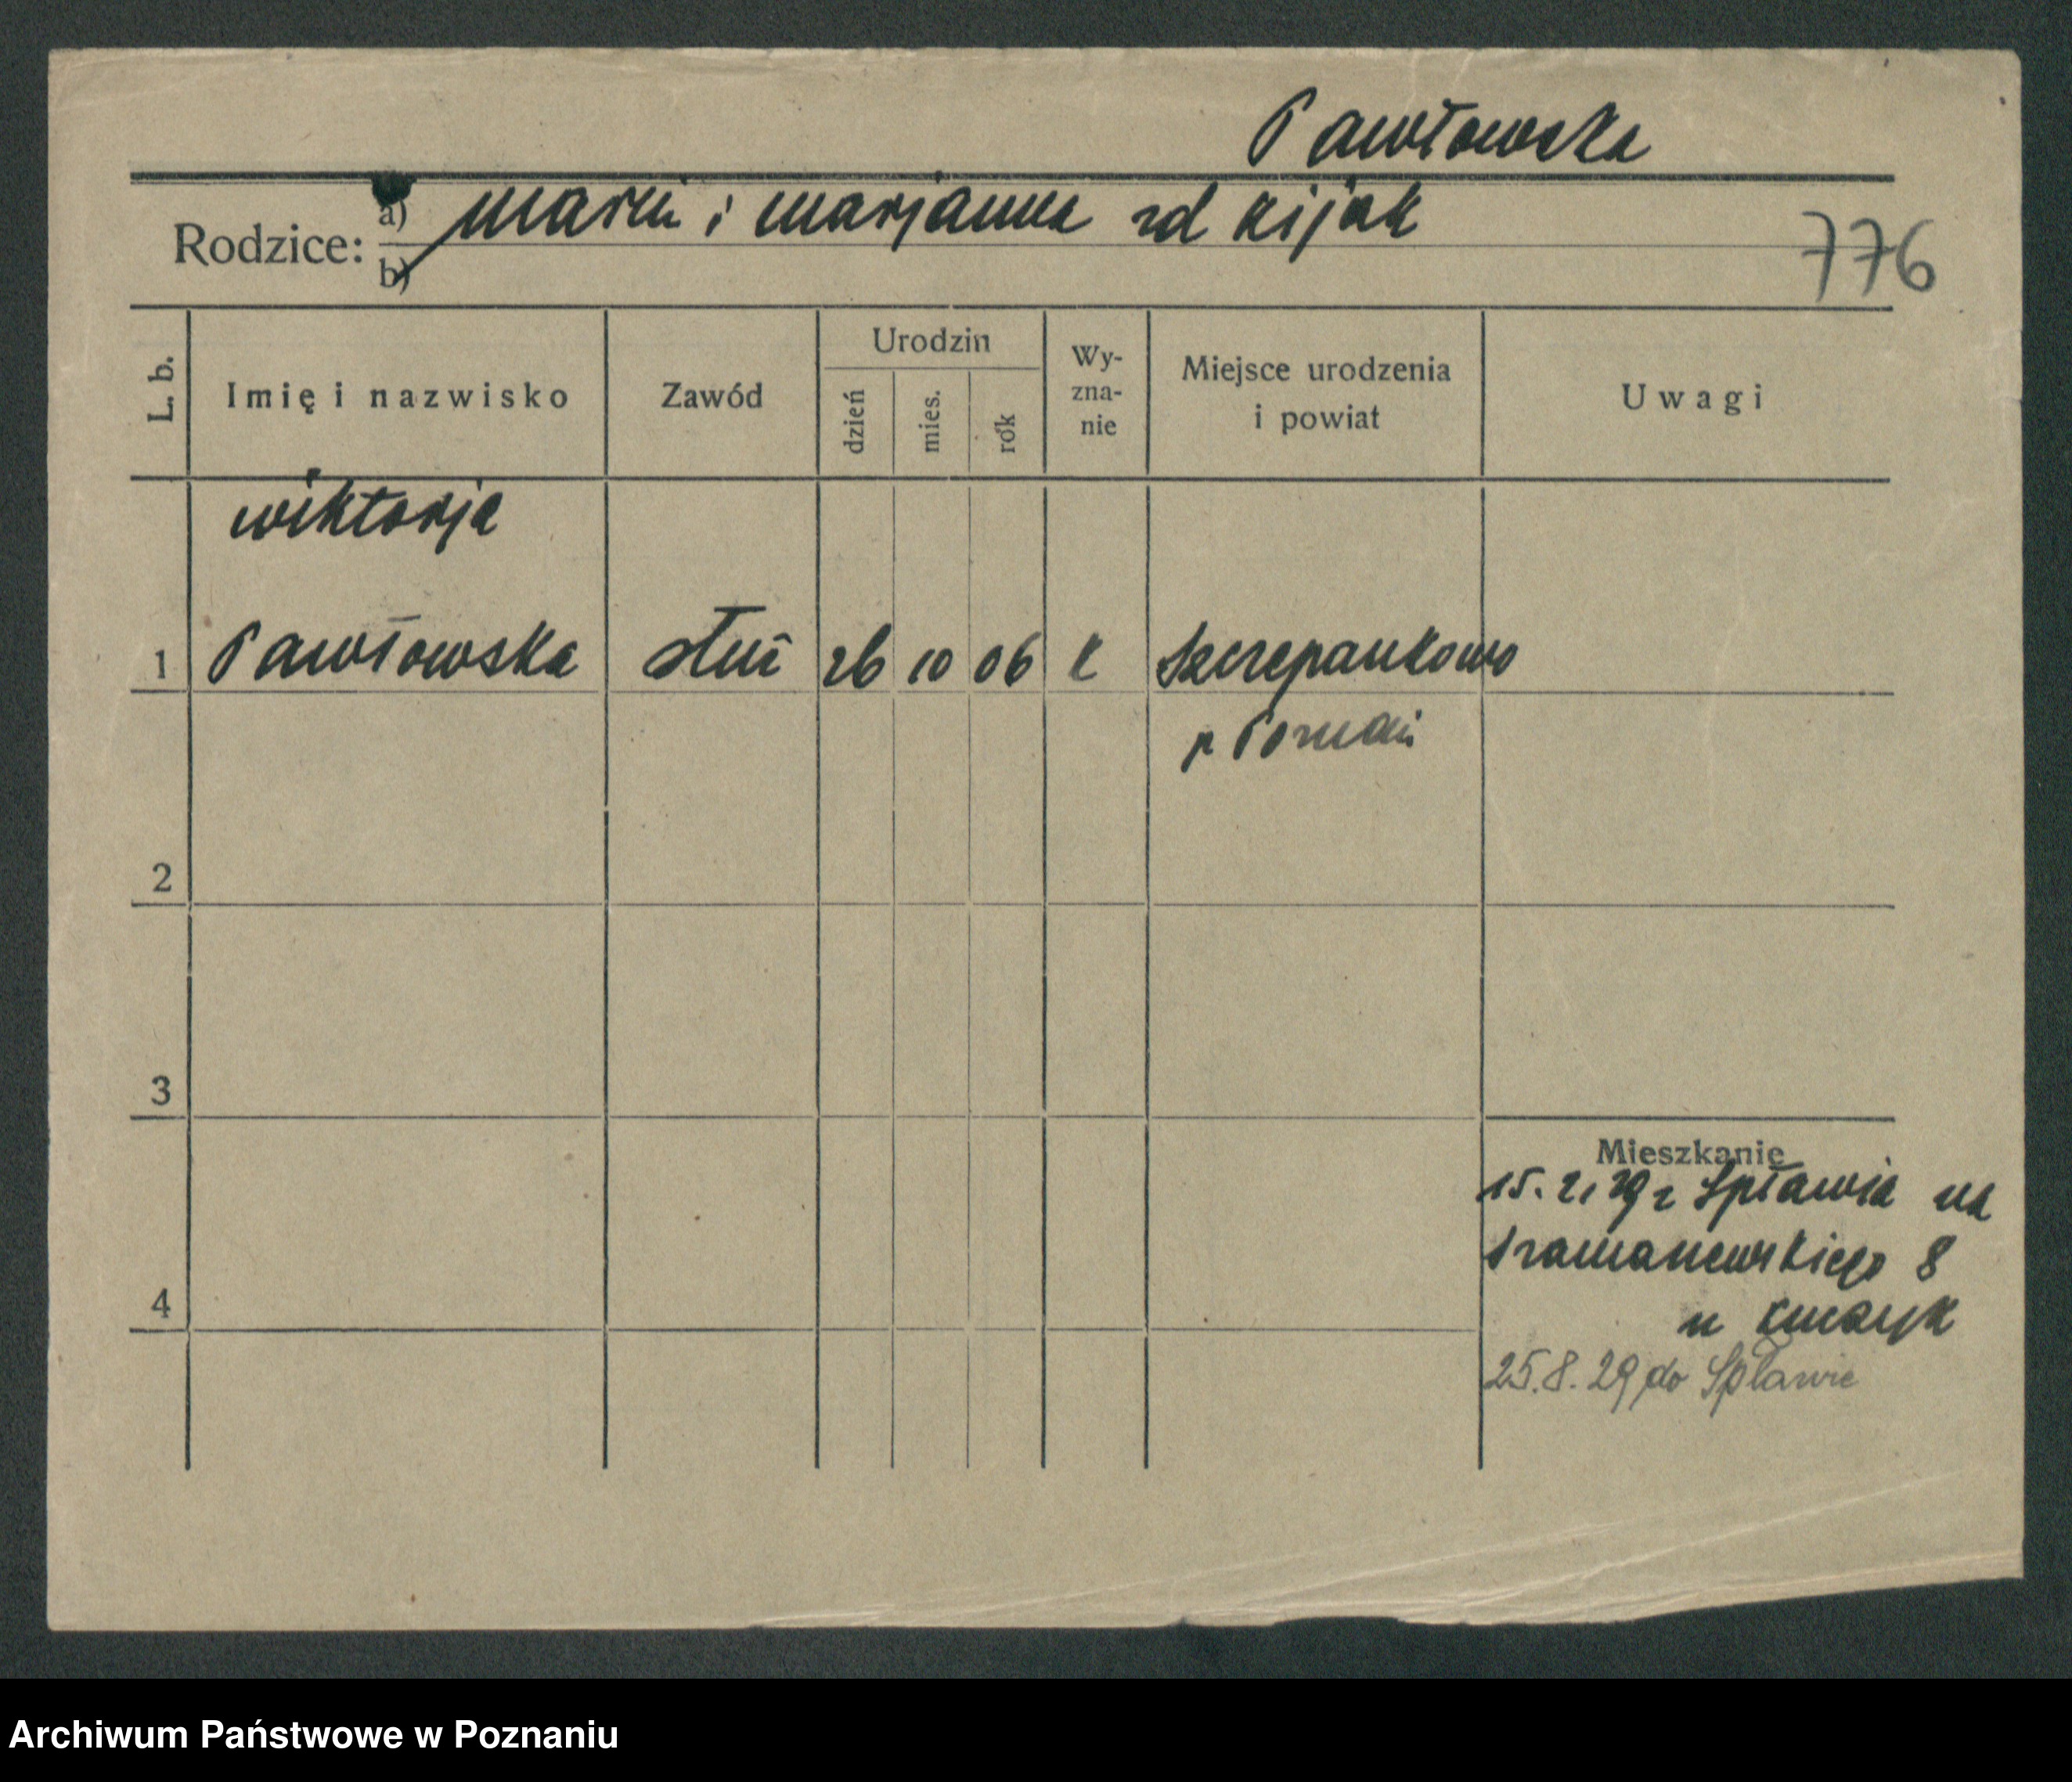 Pawłowska
Rodzice: a) Marcin i Marjanna zd Kijak
b)
776
L. b.
Imię i nazwisko
Zawód
Urodzin
dzień
mies.
rok
Wy-
zna-
nie
Miejsce urodzenia
i powiat
Uwagi
Wiktorja
1 Pawłowska służ 26 10 06 k Szczepankowo
p Poznań
2
3
Mieszkanie
15. 2, 29 z Spławia na
Szamarzewskiego 8
4
u
25.8.29 do Spławie
Archiwum Państwowe w Poznaniu